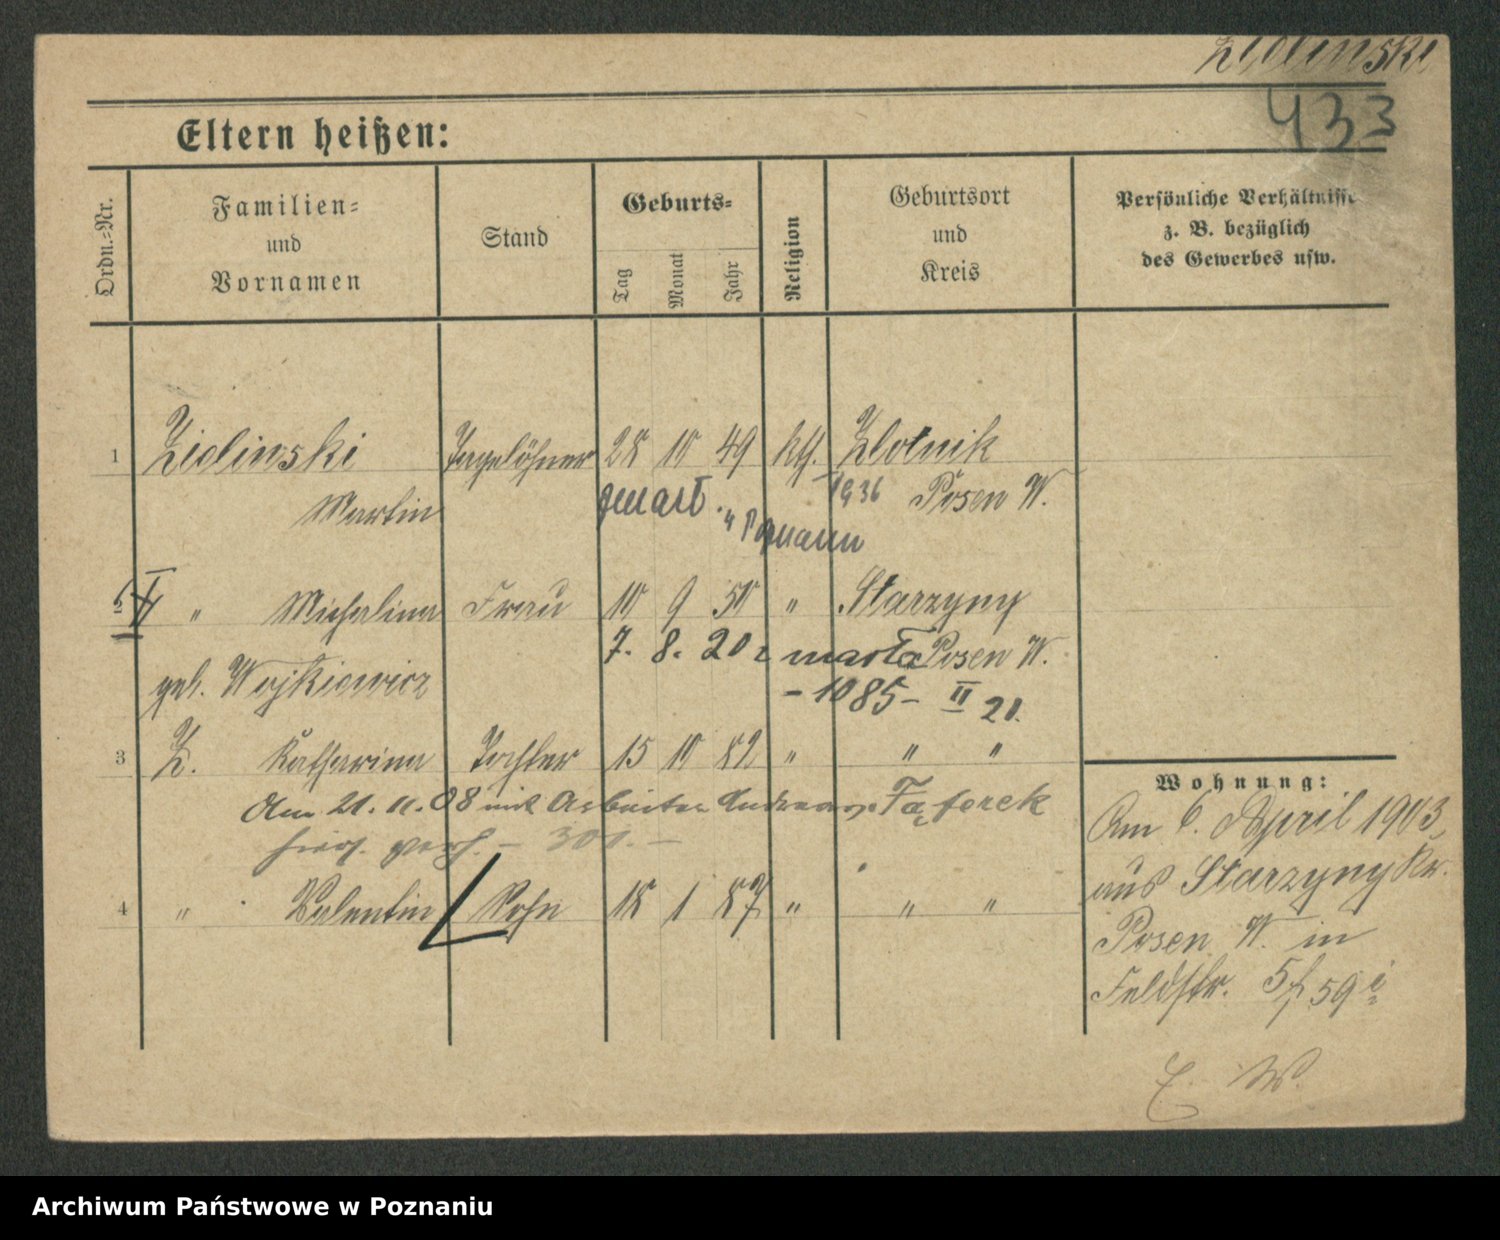 Zielinski
433
Eltern heißen:
Ordn.-Nr.
Familien-
und
Vornamen
Stand
Geburts-
Tag
Monat
Jahr
Religion
Geburtsort
und
Kreis
Persönliche Verhältnisse
z. B. bezüglich
des Gewerbes usw.
1 Zielinski Tagelöhner 28 10 49 kth. Zlotnik
Martin 1936 Posen W.
2 II " Michalina Frau 10 9 50 " Starzyny
7. 8. 20 marła Posen W.
geb. Wojkiewicz - 1085 - II 20.
3 Z. Katharina Tochter 15 10 82 " " "
Am 21. 11. 08 mit Arbeiter Andreas
hier verh. - 301. -
4 " Valentin Sohn 18 1 87 " " "
Wohnung:
Am 6. April 1903
aus Starzyny Kr.
Posen W. in
Feldstr. 59
W.
Archiwum Państwowe w Poznaniu